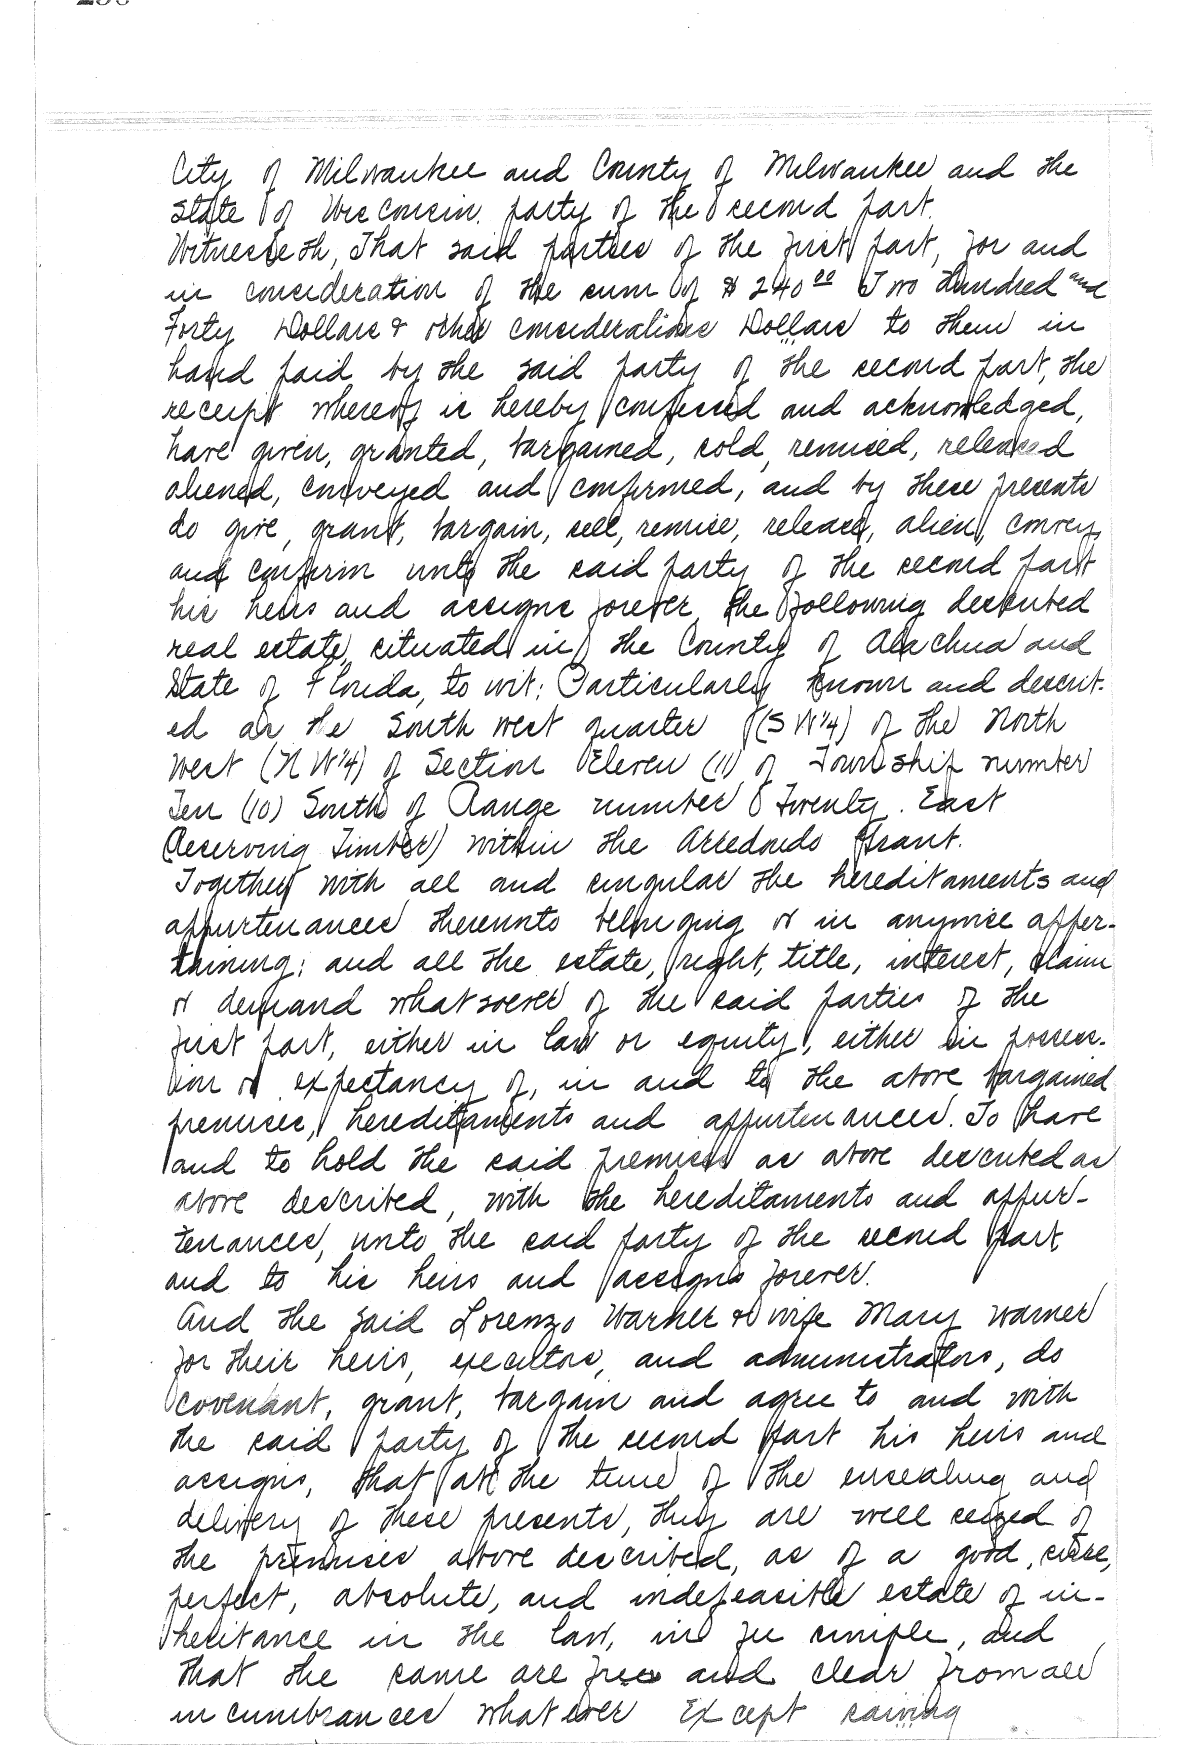 City of Milwaukee and County of Milwaukee and the
State of Wisconsin. party of the second part.
Witnesseth, That said parties of the first part, for and
in consideration of the sum of $240.00 Two Hundred and
Forty Dollars & other considerations Dollars to them in
hand paid by the said party of the second part, the
receipt whereof is hereby confessed and acknowledged,
have given, granted, bargained, sold, remised, released
aliened, conveyed and confirmed, and by these presents
do give, grant, bargain, sell, remise, release, alien, convey,
and confirm unto the said party of the second part
his heirs and assigns forever, the following described
real estate, situated in the County of Alachua and
State of Florida, to wit: Particularly known and describ-
ed as the South west quarter (SW 1/4) of the North
West (NW 1/4) of Section Eleven (11) of Township number
Ten (10) South of Range number Twenty. East
(Reserving Timber) within the Arredondo Grant.
Together with all and singular the hereditaments and
appurtenances thereunto belonging or in anywise apper-
taining; and all the estate, right, title, interest, claim
or demand whatsoever of the said parties of the
first part, either in law or equity, either in posses-
ion or expectancy of, in and to the above bargained
premises, hereditaments and appurtenances. To have
and to hold the said premises as above described as
above described, with the hereditaments and appur-
tenances, unto the said party of the second part
and to his heirs and assigns forever.
And the said Lorenzo Warner & wife Mary Warner
for their heirs, executors, and administrators, do
covenant, grant, bargain and agree to and with
the said party of the second part his heirs and
assigns, that at the time of the ensealing and
delivery of these presents, they are well seized of
the premises above described, as of a good, sure,
perfect, absolute, and indefeasible estate of in-
heritance in the law, in fee simple, and
that the same are free and clear from all
incumbrances whatever Except saving